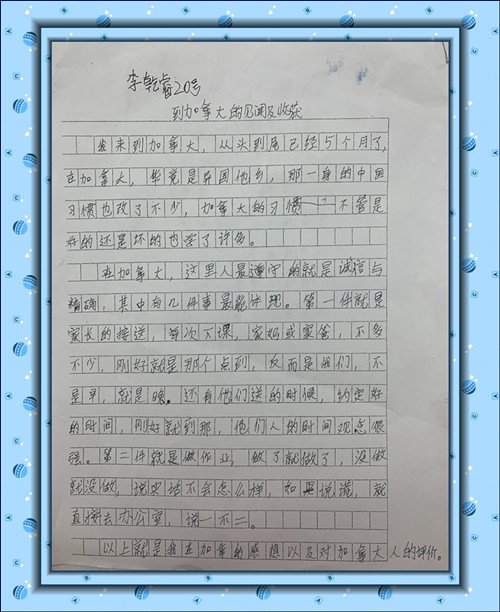 李乾睿20号
到加拿大的见闻及收获
我来到加拿大，从头到尾已经5个月了，
在加拿大，毕竟是异国他乡，那一身的中国
习惯也改了不少，加拿大的习惯——不管是
好的还是坏的也学了许多。
在加拿大，这里人最遵守的就是诚信与
精确，其中有几件事最能体现。第一件就是
家长的接送，每次下课，家妈或家爸，不多
不少，刚好就是那个点到，反而是我们，不
是早，就是晚。还有他们送的时候，约定好
的时间，刚好就到那，他们人的时间观念很
强。第二件就是做作业，做了就做了，没做
就没做，说实话不会怎么样，如果说谎，就
直接去办公室，说一不二。
以上就是我在加拿大的感想以及对加拿大人的评价。